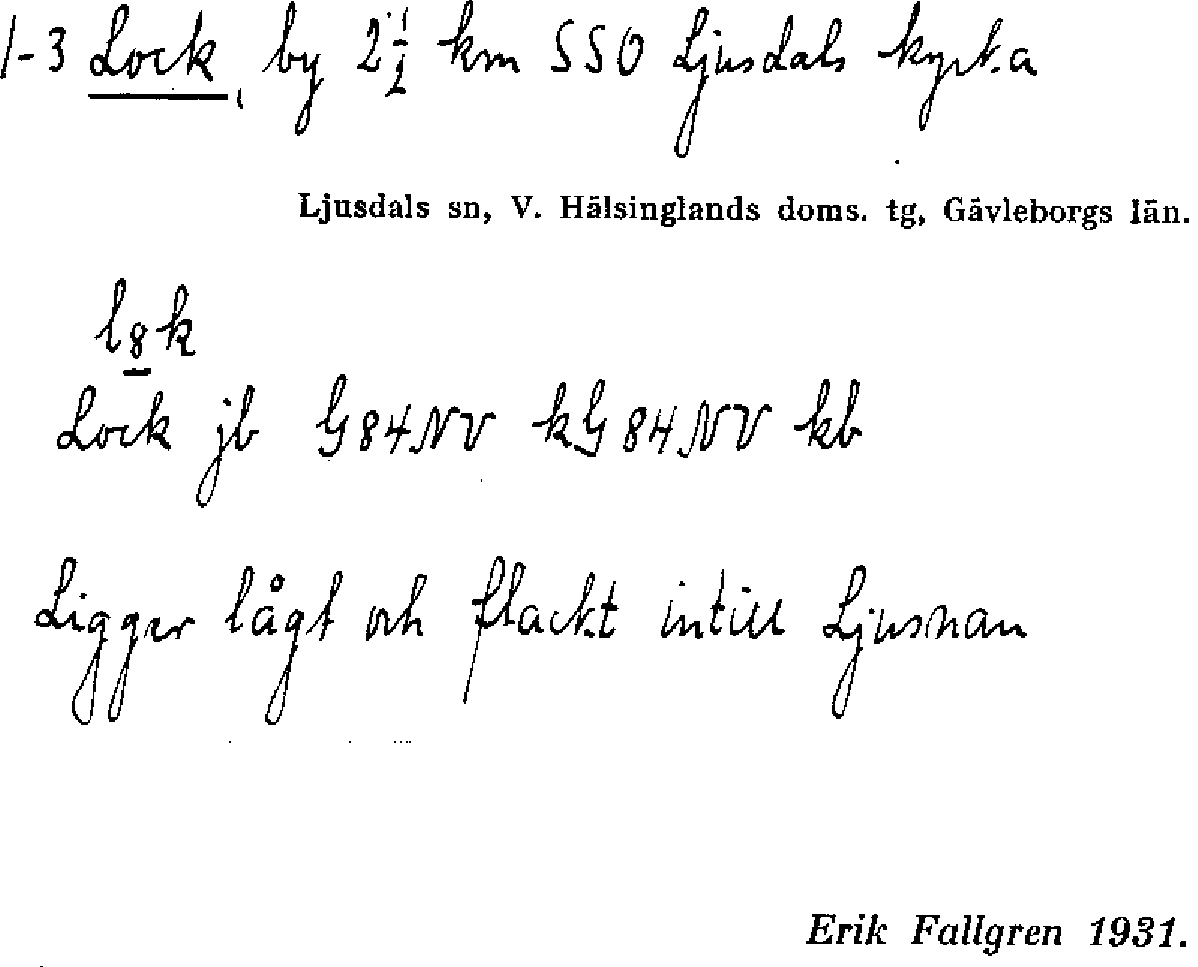 1-3 Lock, by 2½ km SSO Ljusdals kyrka
Ljusdals sn, V. Hälsinglands doms. tg, Gävleborgs län.
l8k
Lock jb G84NV kG84NV kb
Ligger lågt och flackt intill Ljusnan
Erik Fallgren 1931.